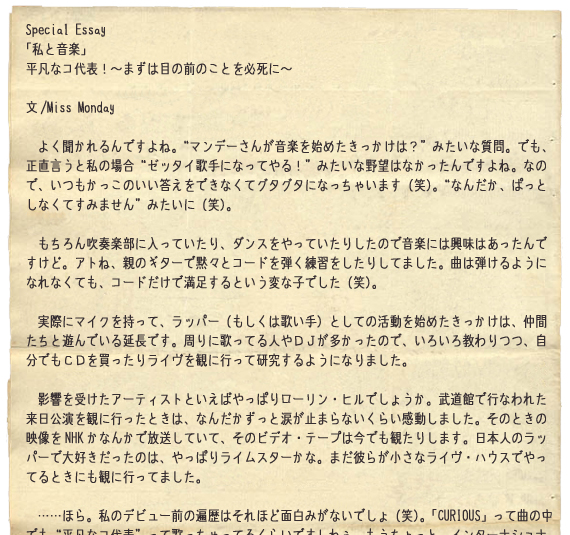 Special Essay
「私と音楽」
平凡なコ代表！〜まずは目の前のことを必死に〜
文/Miss Monday
よく聞かれるんですよね。“マンデーさんが音楽を始めたきっかけは？”みたいな質問。でも、
正直言うと私の場合“ゼッタイ歌手になってやる！”みたいな野望はなかったんですよね。なの
で、いつもかっこのいい答えをできなくてグタグタになっちゃいます（笑）。“なんだか、ぱっと
しなくてすみません”みたいに（笑）。
もちろん吹奏楽部に入っていたり、ダンスをやっていたりしたので音楽には興味はあったんで
すけど。アトね、親のギターで黙々とコードを弾く練習をしたりしてました。曲は弾けるように
なれなくても、コードだけで満足するという変な子でした（笑）。
実際にマイクを持って、ラッパー（もしくは歌い手）としての活動を始めたきっかけは、仲間
たちと遊んでいる延長です。周りに歌ってる人やＤＪが多かったので、いろいろ教わりつつ、自
分でもＣＤを買ったりライヴを観に行って研究するようになりました。
影響を受けたアーティストといえばやっぱりローリン・ヒルでしょうか。武道館で行なわれた
来日公演を観に行ったときは、なんだかずっと涙が止まらないくらい感動しました。そのときの
映像をNHKかなんかで放送していて、そのビデオ・テープは今でも観たりします。日本人のラッ
パーで大好きだったのは、やっぱりライムスターかな。まだ彼らが小さなライヴ・ハウスでやっ
てるときにも観に行ってました。
……ほら。私のデビュー前の遍歴はそれほど面白みがないでしょ（笑）。「CURIOUS」って曲の中